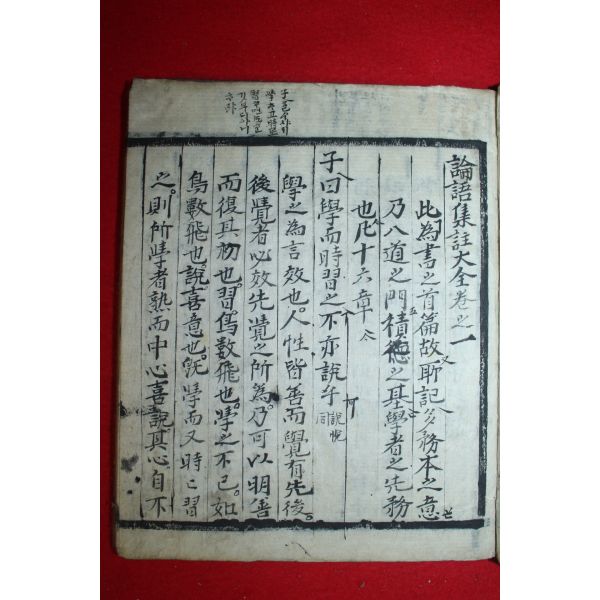 論語集註大全卷之一
此為書之首篇故所記多務本之意
乃入道之門積德之基學者之先務
也凡十六章
子曰學而時習之不亦說乎 說悅同
學之為言效也人性皆善而覺有先後
後覺者必效先覺之所為乃可以明善
而復其初也習鳥數飛也學之不已如
鳥數飛也說喜意也旣學而又時〻習
之則所學者熟而中心喜說其心自不